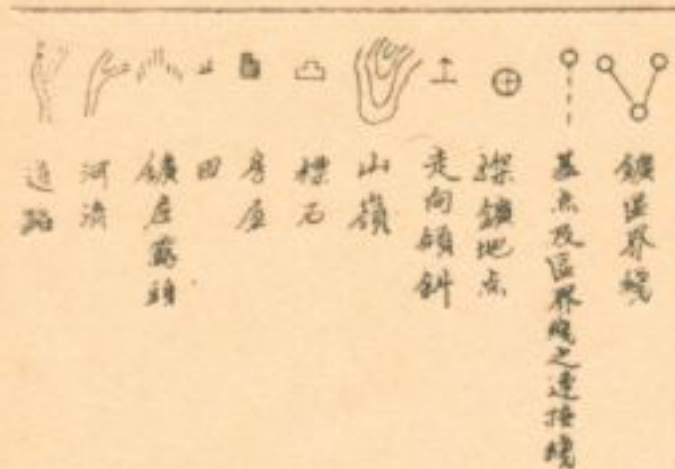 鑛區界綫
基点及區界綫之連接綫
探鑛地点
走向傾斜
山嶺
標石
房屋
田
鑛産露頭
河流
道路